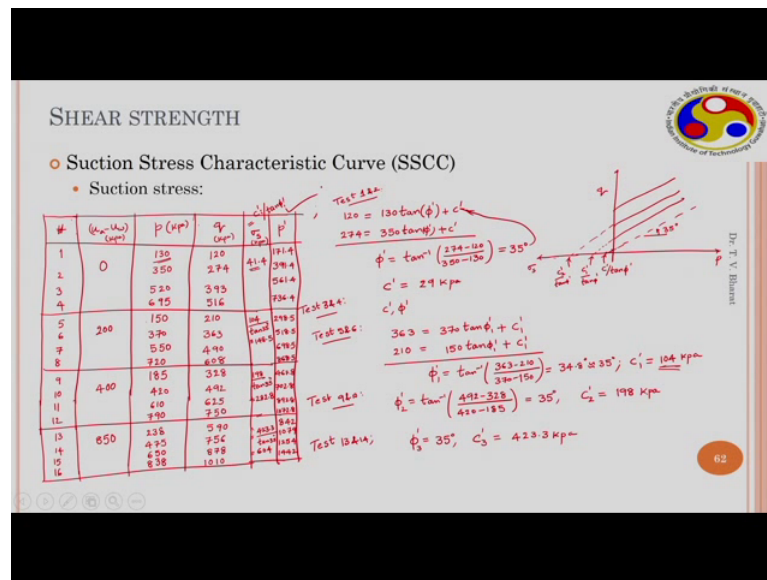 SHEAR STRENGTH
Suction Stress Characteristic Curve (SSCC)
• Suction stress:
# (ua-uw) (kPa) p (kPa) q (kPa) σs (kPa) = c'/tanφ' p'
1 0 130 120 41.4 171.4
2 350 274 391.4
3 520 393 561.4
4 695 516 736.4
5 200 150 210 104/tan35 = 148.5 298.5
6 370 363 518.5
7 550 490 698.5
8 720 608 868.5
9 400 185 328 198/tan35 = 282.8
10 420 492 702.8
11 610 625 892.8
12 790 750 1072.8
13 850 238 590 423.3/tan35 = 604 842
14 475 756 1079
15 650 878 1254
16 838 1010 1442
Test 1&2
120 = 130 tan(φ') + c'
274 = 350 tanφ' + c'
φ' = tan⁻¹ (274-120/350-130) = 35°
c' = 29 kPa
Test 3&4: c', φ'
Test 5&6: 363 = 370 tanφ₁' + c₁'
210 = 150 tanφ₁' + c₁'
φ₁' = tan⁻¹ (363-210/370-150) = 34.8° ≈ 35°; c₁' = 104 kPa
φ₂' = tan⁻¹ (492-328/420-185) = 35°, c₂' = 198 kPa
Test 13&14; φ₃' = 35°, c₃' = 423.3 kPa
q
35°
σs
p
c'/tanφ'
Dr. T. V. Bharat
62